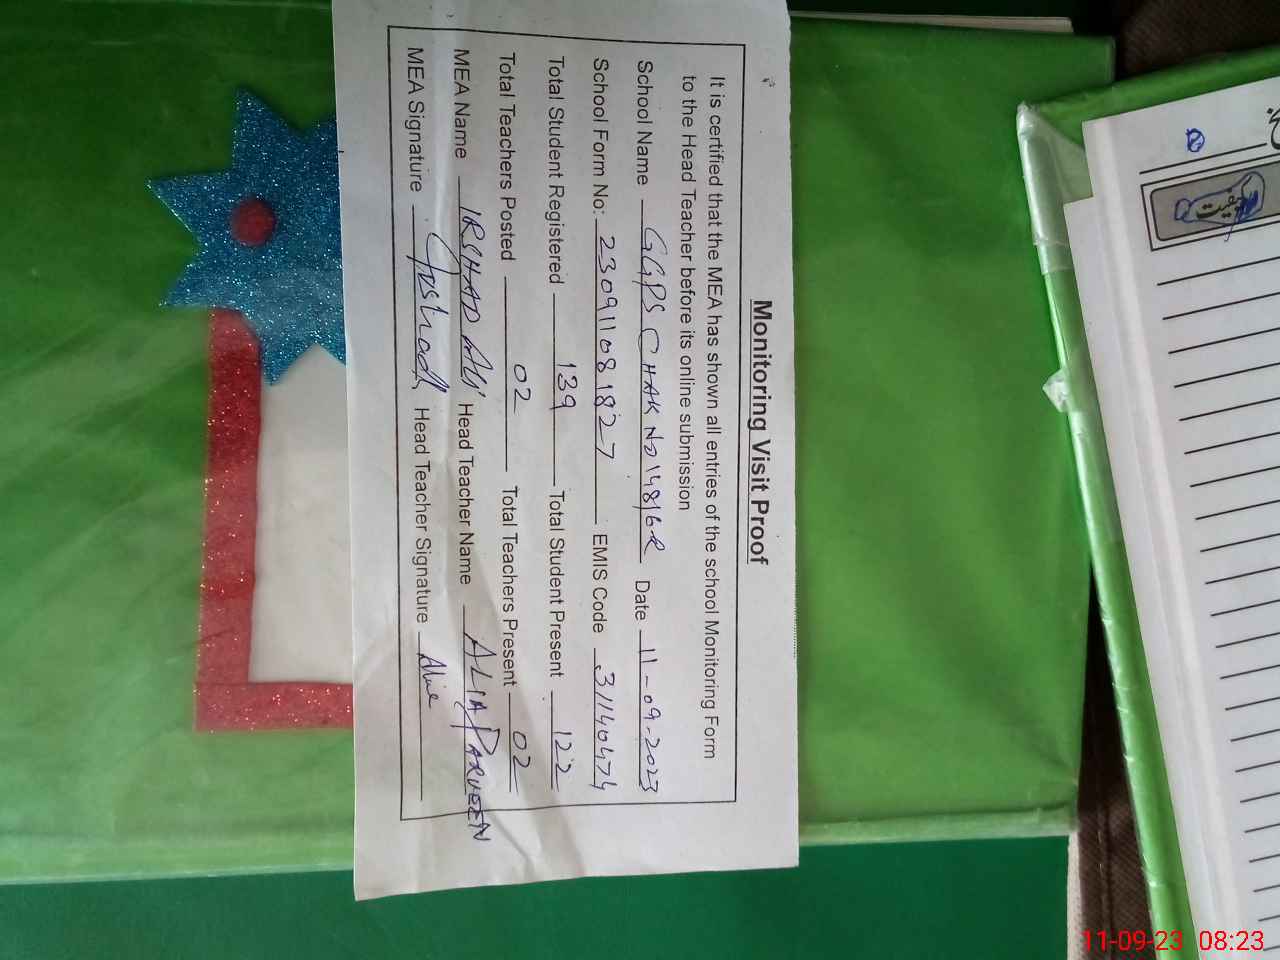 Monitoring Visit Proof
It is certified that the MEA has shown all entries of the school Monitoring Form
to the Head Teacher before its online submission
School Name GGPS CHAK NO 148/6-R Date 11-09-2023
School Form No: 23091108 1827 EMIS Code 31140474
Total Student Registered 139 Total Student Present 122
Total Teachers Posted 02 Total Teachers Present 02
MEA Name IRSHAD ALI Head Teacher Name ALIA PARVEEN
MEA Signature Irshad Head Teacher Signature
کیفیت
11-09-23 08:23